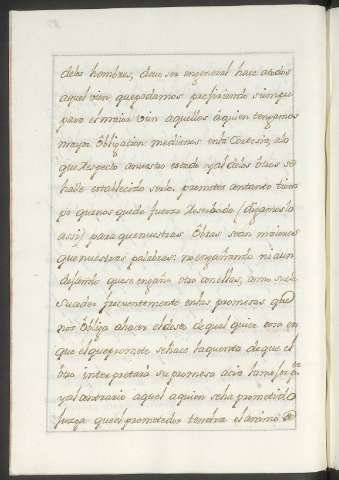 delos hombres, deue ser engeneral hacer atodos
aquel vien quepodamos prefiriendo siempre
para el maior vien aquellos aquien tengamos
mayor Obligacion, medirnos enla Cortesia, alo
que Respecto anuestro estado yal delos otros se
halle establecido
po quenos quede fuerza Reseruado (digamoslo
assi) para quenuestras Obras sean maiores
quenuestras palabras: no engañando ni aun
dejando quese engañe otro conellas, como suele
suceder frecuentemente enlas promesas que
nos Obliga ahacer eldeseo de qual quier cosa en
que elquepromete sehace laquenta deque el
otro interpretará su promesa
yal contrario aquel aquien seha prometido
Juzga queel prometedor tendra elanimo de